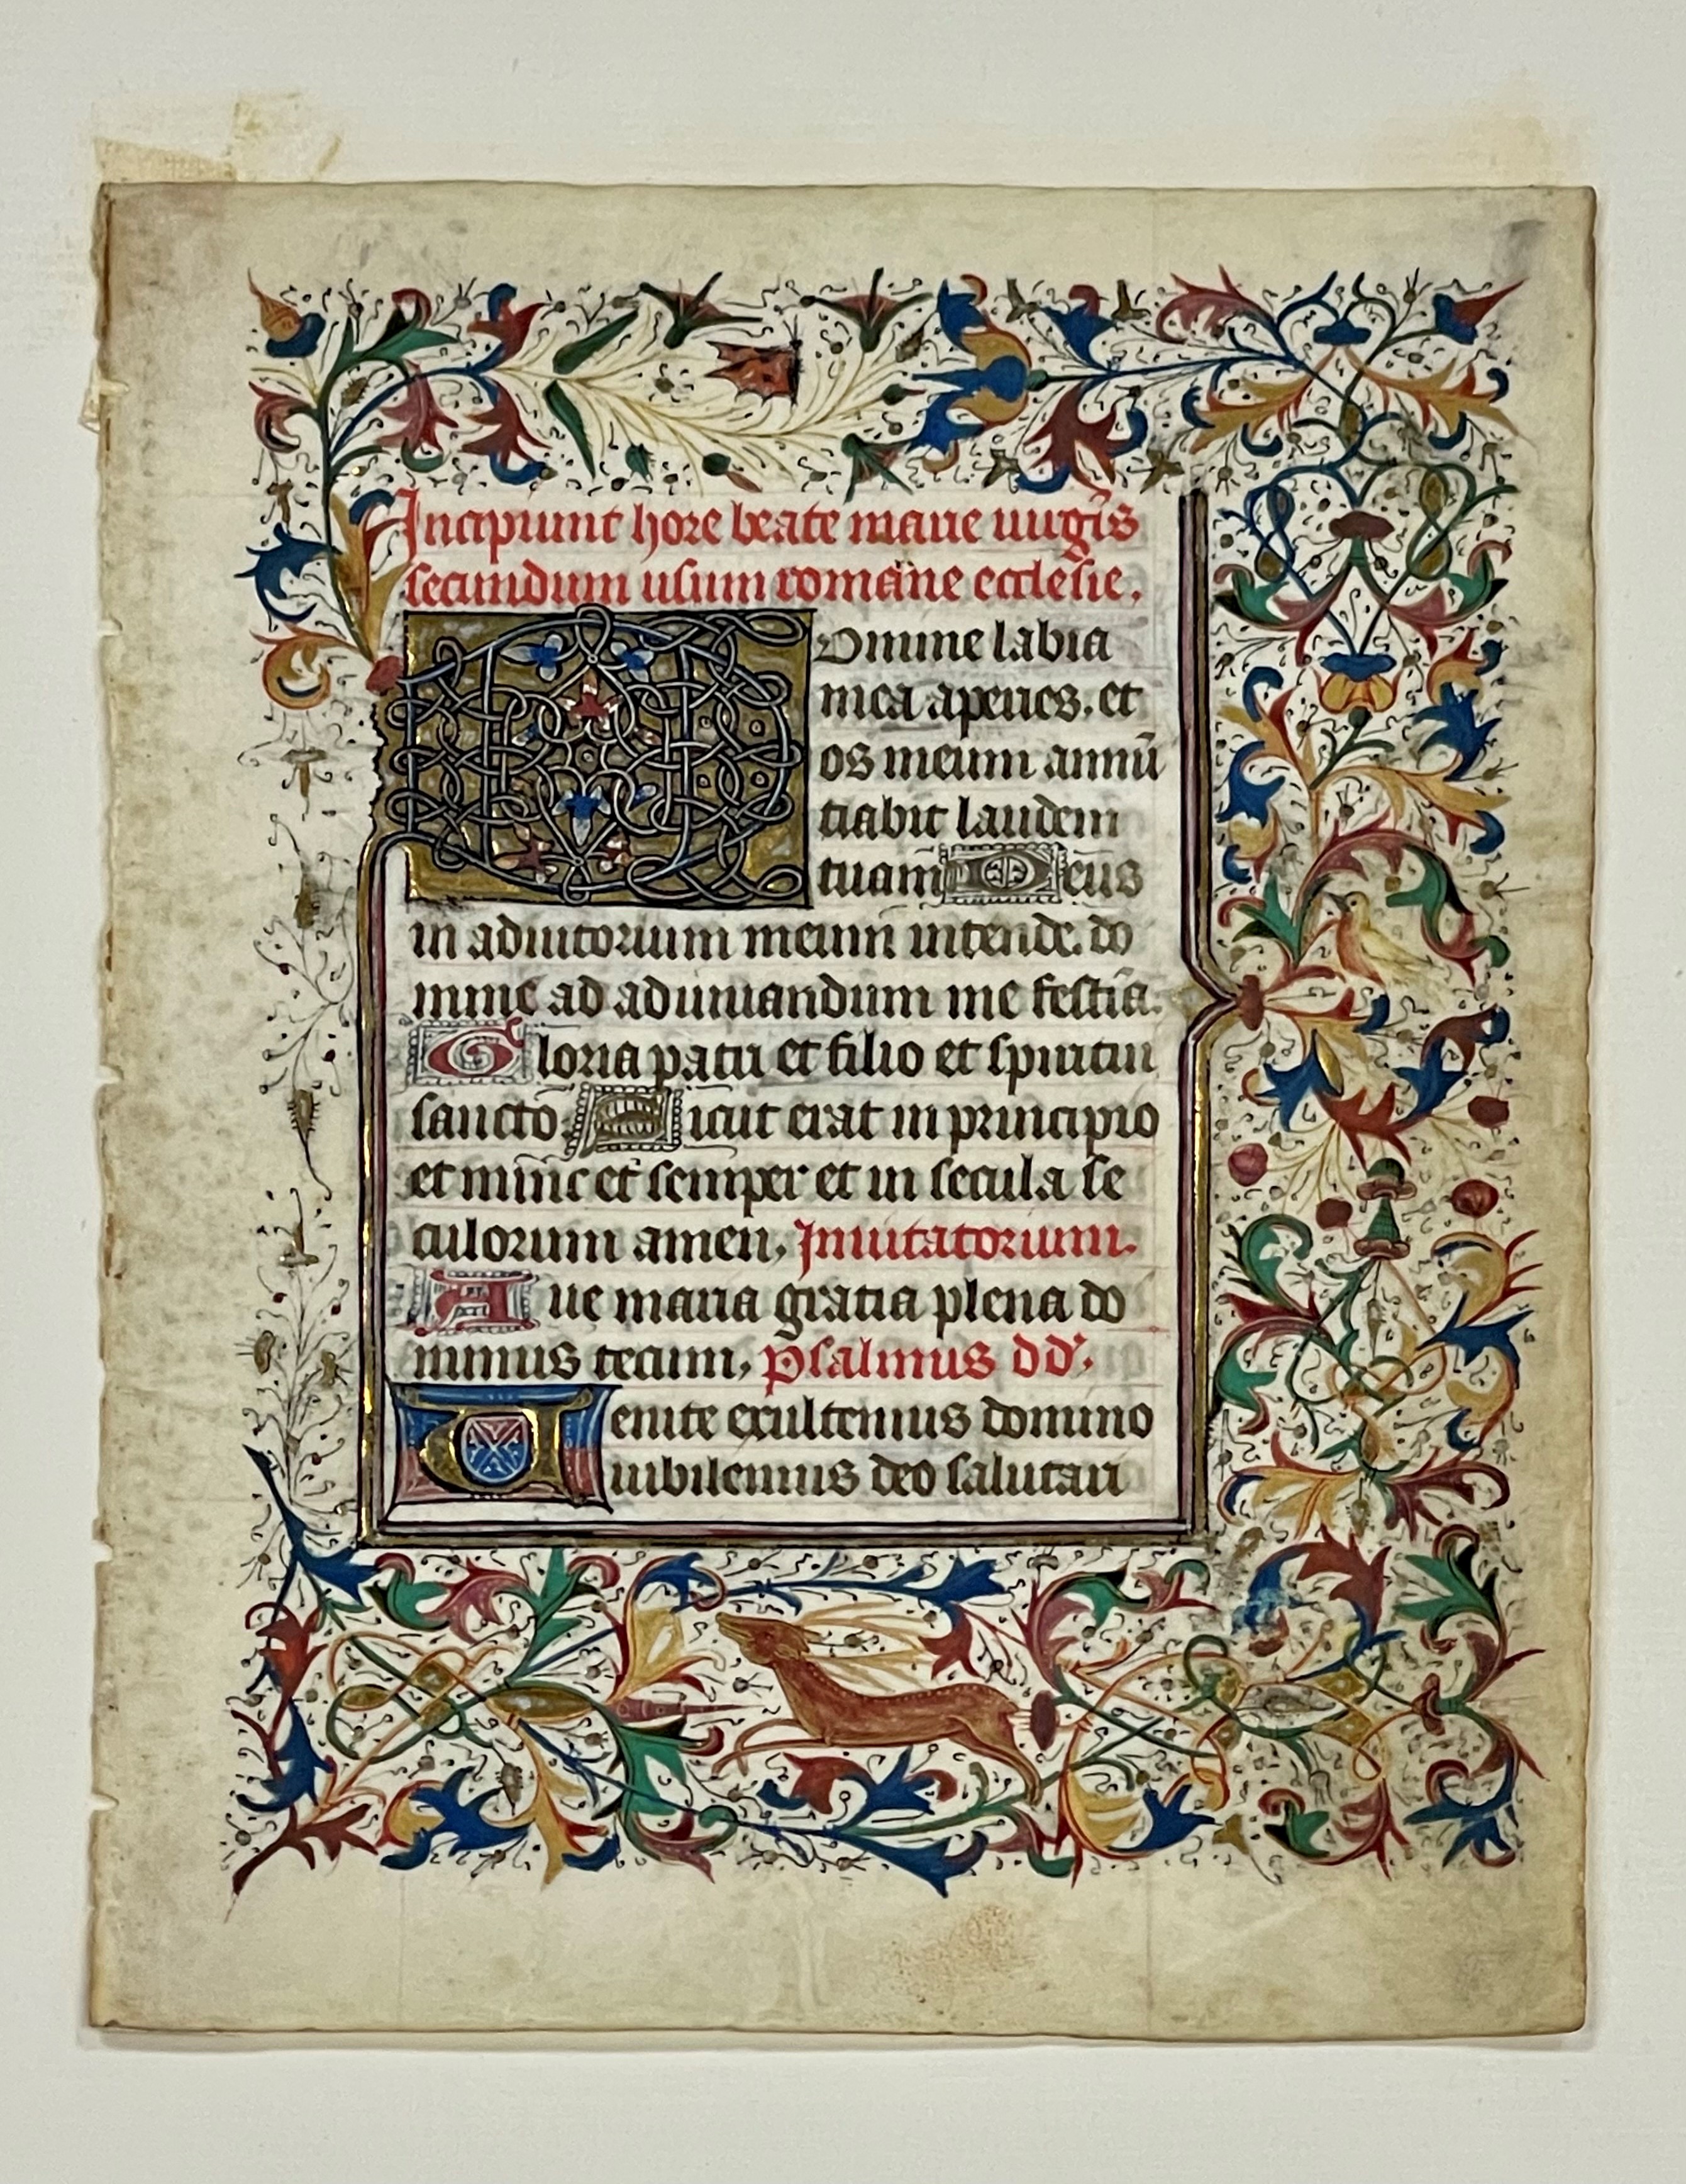 Incipiunt hore beate marie uirgīs
secundum usum romane ecclesie.
Domine labia
mea aperies. et
os meum annū
tiabit laudem
tuam Deus
in adiutorium meum intende. do
mine ad adiuuandum me festia.
Gloria patri et filio et spiritui
sancto Sicut erat in principio
et nunc et semper et in secula se
culorum amen. Inuitatorium.
Aue maria gratia plena do
minus tecum. Psalmus dd.
Uenite exultemus domino
iubilemus deo salutari